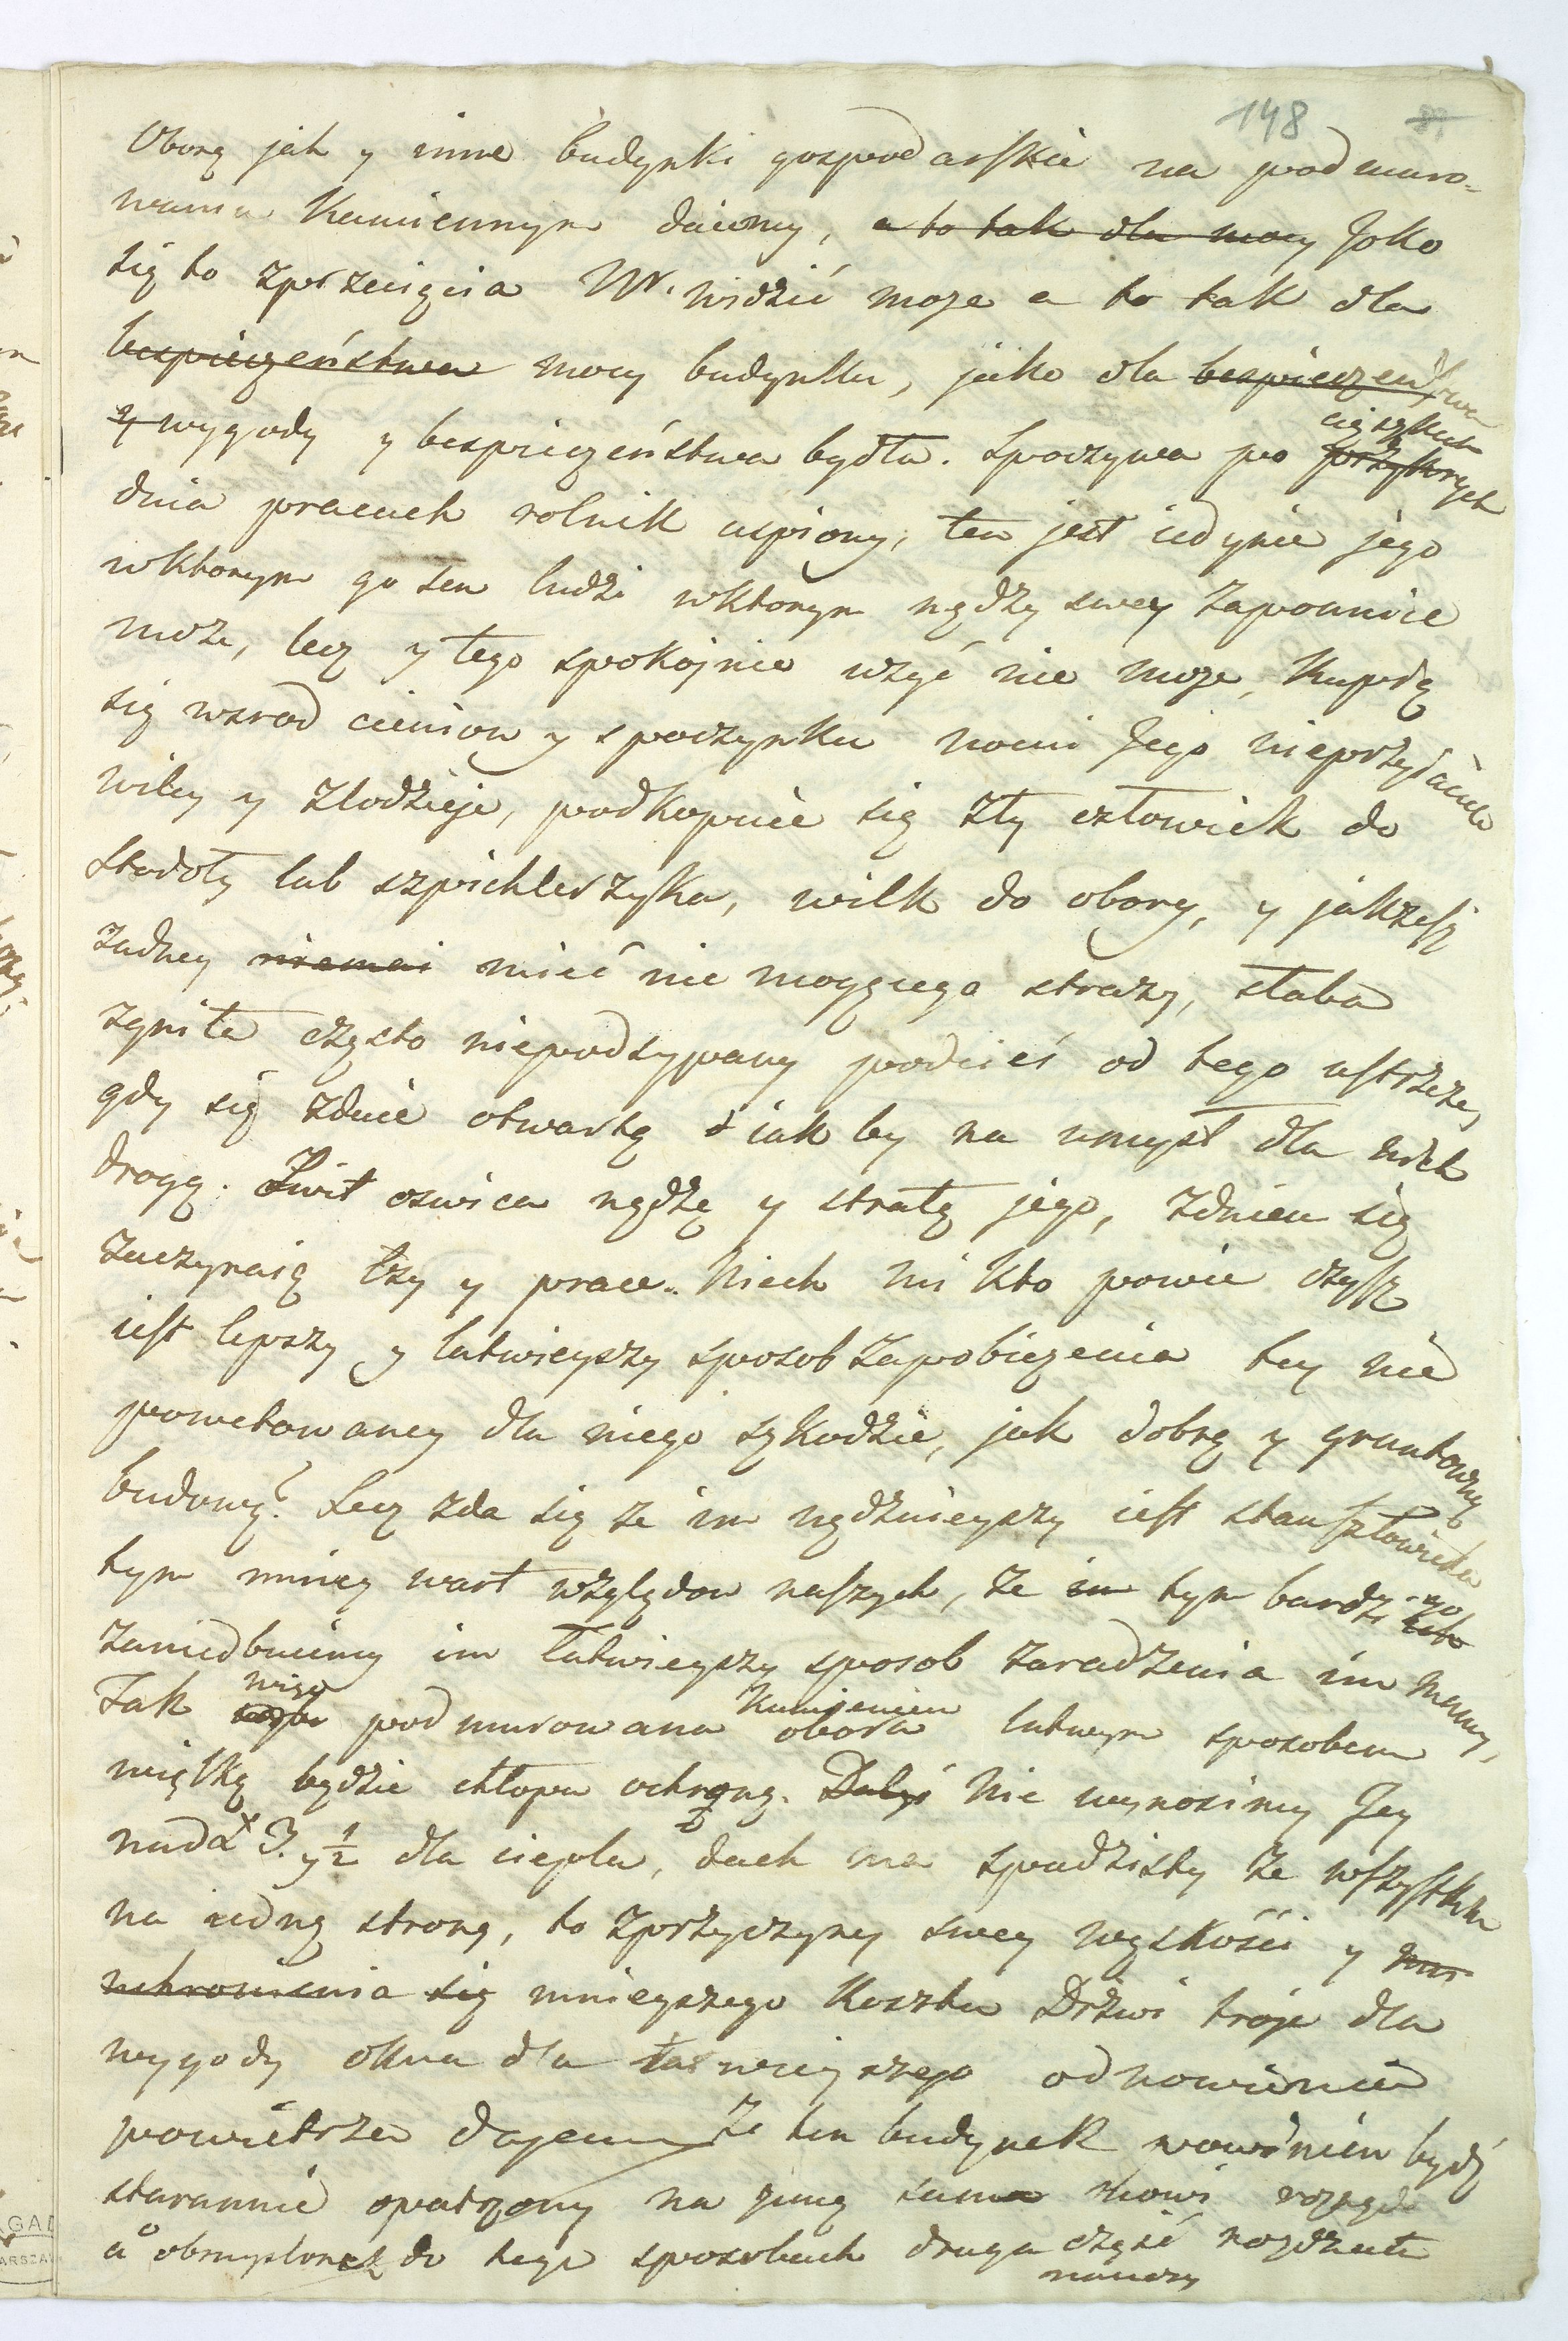 148
Oborę jak y inne budynki gospodarskie na podmuro-
waniu kamiennym daiemy, a to tak dla mocy Jako
się to zprzecięcia W. widzić może a to tak dla
bespieczeństwa mocy budynku, jako dla bespieczeństwa
y wygody y bespieczeństwa bydła. Spoczywa po przykrych ciężkich
dnia pracach rolnik uspiony, ten jest iedynie jego
wktorym go sen ludzi wktorym nędzy swey zapomnieć
może, lecz y tego spokojnie użyć nie może,
się wsrod cieniow y spoczynku nocni Jego nieprzyiaciele
wilcy y złodzieje, podkopuie się zły człowiek do
Stodoły lub szpichlerzyka, wilk do obory, y jakżesz
żadney niemai mieć nie mogącego straży, słaba
zgniła często niepodsypany podcieś od tego ustrzeże,
gdy się zdaie otwartą iak by na umysł dla nich
drogą. Świt oswica nędzę y stratę jego, zdniem się
zaczynaią łzy y prace. Niech mi kto powie czysz
iest lepszy y łatwieyszy sposob zapobieżenia tey nie
powetowaney dla niego szkodzie, jak dobrą y gruntowną
budową? Lecz zda się że im nędznieyszy iest stan człowieka
tym mniey wart względow naszych, że im tym bardzi go
zaniedbuiemy im łatwieyszy sposob zaradzenia im mamy,
Tak więc podmurowana kamieniem obora łatwym sposobem
wielką będzie chłopu ochroną. Daley Nie wynosimy Jey
nad Ł 3. y ½ dla ciepła, dach ma spadzisty ze wszystkim
na iedną stronę, to zprzyczyny swey wąskości y
uchronienia się mnieyszego kosztu Drzwi troje dla
wygody okna dla łatwieyszego odnowienia
powietrza dajemy Ze ten budynek powinien bydź
starannie opatrzony na zimę sama mowi
a o obmyslonych do tego sposobach druga część rozdziału